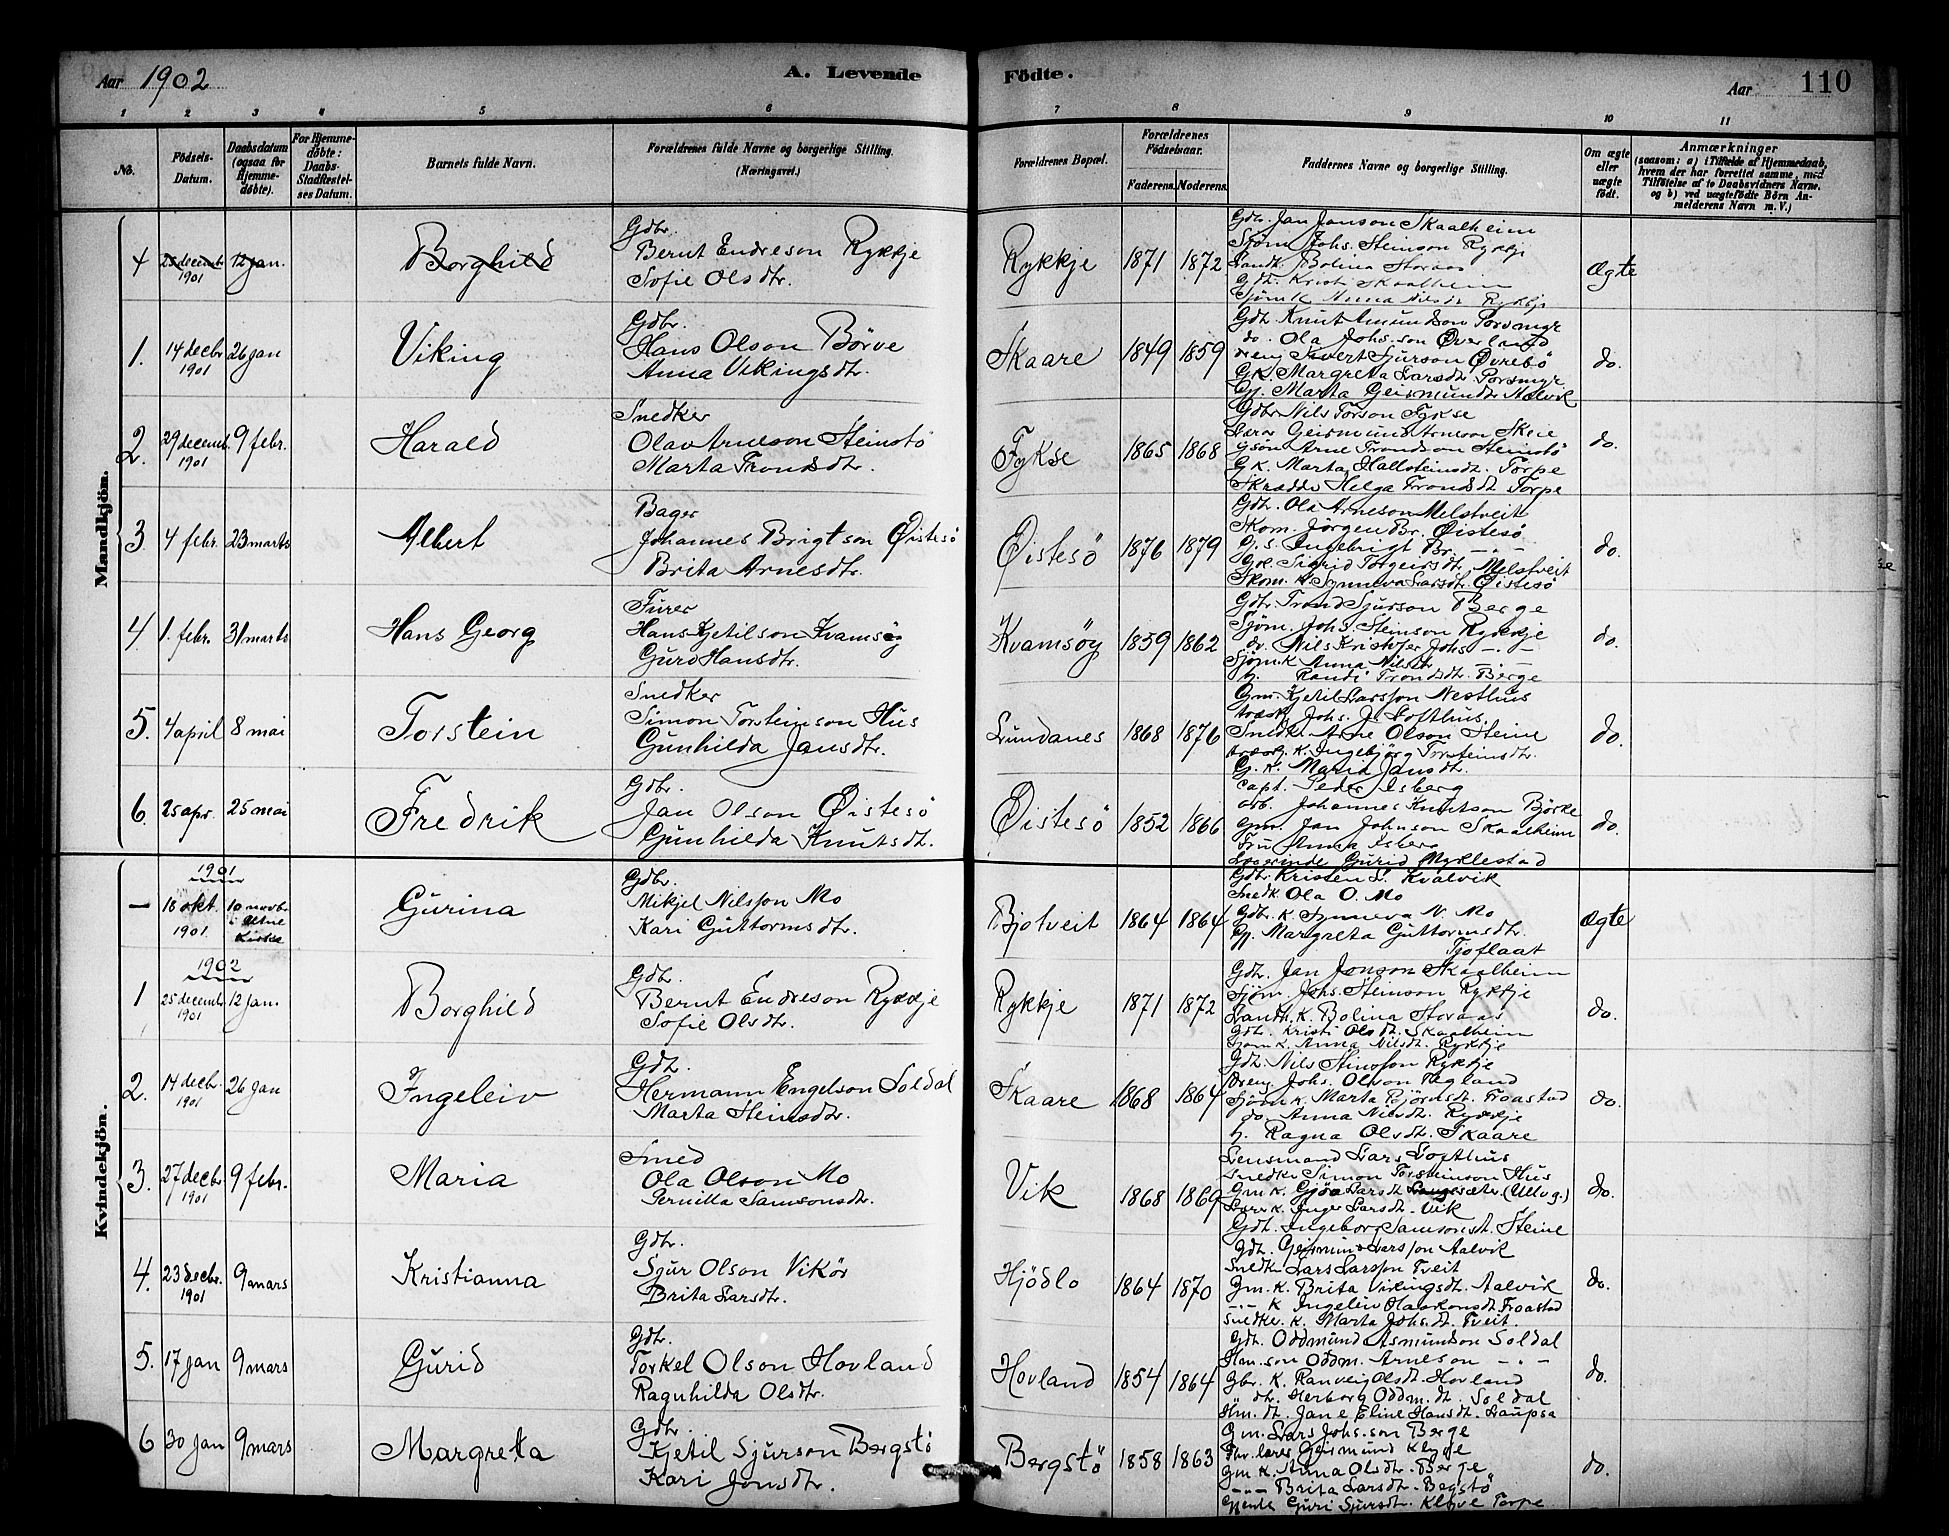 Aar 1902
A. Levende Födte.
Aar
110
1 2 3 4 5 6 7 8 9 10 11
No.
Födsels-Datum.
Daabsdatum (ogsaa for Hjemmedøbte).
For Hjemmedøbte: Daabs-Stadfestelses Datum.
Barnets fulde Navn.
Forældrenes fulde Navne og borgerlige Stilling. (Næringsvei.)
Forældrenes Bopæl.
Forældrenes Födselsaar.
Faderens. Moderens.
Faddernes Navne og borgerlige Stilling.
Om ægte eller uægte født.
Anmærkninger
(saasom: a) i Tilfælde af Hjemmedaab, hvem der har forrettet samme, med Tilföielse af to Daabsvidners Navne, og b) ved uægtefödte Börn Anmelderens Navn m. V.)
Mandkjön.
4 25 decemb. 1901 12 jan. Borghild
Gdbr.
Bernt Endreson Rykkje
Sofie Olsdtr.
Rykkje 1871 1872
Gdbr. Jan Janson Skaalheim
Sjöm. Johs. Steinson Rykkje
Landh. Bolina Storaas
Gdtr. Kristi Skaalheim
Sjöm.k. Anna Nilsdr Rykkje
Ægte
1. 14 decbr 1901 26 jan Viking
Gdbr.
Hans Olson Börve
Anna Vikingsdtr.
Skaare 1849 1859
Gdb. Knut Amundson Porsmyr
do. Ola Johs.son Överland
dreng Sivert Sjurson Övrebö
G.K. Margreta Larsdtr. Porsmyr
Gj. Marta Geirmundsdtr Aalvik
do.
2. 29 decemb. 1901 9 febr. Harald
Snedker
Olav Arneson Steinstö
Marta Trondsdtr.
Fykse 1865 1868
Gdbr Nils Torson Fykse
Lærer Geirmund Arneson Skeie
Gsön Arne Trondson Steinstö
G.K. Marta Hallsteinsdt. Torpe
Skrædder Helga Trondsdt Torpe
do.
3. 4 febr. 23 marts Albert
Bager
Johannes Brigtson Öistesö
Brita Arnesdtr.
Öistesö 1876 1879
Gdb. Ola Arneson Melstveit
Skom. Jörgen Br. Öistesö
G.s. Ingebrigt Br. - " -
Gk. Sigrid Torgeirsdtr. Melstveit
Skom. k. Synneva Larsdtr. Öistesö
do.
4 1. febr. 31 marts Hans Georg
Furer
Hans Kjetilson Kvamsöy
Guro Hansdtr.
Kvamsöy 1859 1862
Gdbr. Trond Sjurson Berge
Sjöm. Johs. Steinson Rykkje
do. Nils Kristofer Johs - " -
Sjöm.k Anna Nilsdtr - " -
Gj. Randi Trondsdtr. Berge
do.
5. 4 april 8 mai Torstein
Snedker
Simon Torsteinson Hus
Gunhilda Jansdtr.
Lundanes 1868 1876
Gm. Kjetil Larsson Nesthus
Johs. J. Lofthus
Snedk. Arne Olson Steine
k. Ingebjörg Torsteinsdtr.
G. k. Maria Jansdtr.
do.
6. 25 apr. 25 mai Fredrik
Gdbr.
Jan Olson Öistesö
Gunhilda Knutsdt.
Öistesö 1852 1866
Capt. Peder Isberg
Arb. Johannes Knutson Björke
Gm. Jan Johnson Skaalheim
Fru Anna Isberg
Lærerinde Gurid Myklestad
do.
Kvindekjön.
1901
— 18 okt. 1901. 10 novbr. i Kirke Gurina
Gdbr.
Mikjel Nilsson Mo
Kari Guttormsdtr.
Bjotveit 1864 1864
Gdbr. Kristen L. Kvalvik
Snedk. Ola O. Mo
Gdbr. k. Synneva N. Mo
Gj. Margreta Guttormsdtr.
Tjoflaat
Ægte
1902
1 25 decemb. 1901 12 jan. Borghild
Gdbr.
Bernt Endreson Rykkje
Sofie Olsdtr.
Rykkje 1871 1872
Gdb. Jan Janson Skaalheim
Sjöm. Johs. Steinson Rykkje
Landh. K. Bolina Storaas
Gdtr. Kristi Olsdt. Skaalheim
Sjöm k. Anna Nilsdt. Rykkje
do.
2. 14 decbr. 1901 26 jan Ingeleiv
Gdb.
Hermann Engelson Soldal
Marta Steinsdtr.
Skaare 1868 1864
Gdb. Nils Steinsson Rykkje
Dreng Johs. Olson Tegland
Sjöm k. Marta Björnsdt. Froastad
do Anna Nilsdt. Rykkje
G. Ragna Olsdt. Skaare
do.
3. 27 decbr 1901 9 febr. Maria
Smed
Ola Olson Mo
Pernilla Samsonsdtr.
Vik 1868 1869
Lensmand Lars Lofthus
Snedker Simon Torsteinson Hus
Gm k. Larsdt. (Ullvg.)
Lærer k. Inger Larsdt. Vik
Gdt. Ingeborg Samsonsdt. Steine
do.
4. 23 decbr. 1901 9 mars Kristianna
Gdb.
Sjur Olson Vikör
Brita Larsdtr.
Hjödlo 1864 1870
Gdb. Geirmund Larsson Aalvik
Snedker Lars Larsson Tveit
Gm. k. Brita Vikingsdt. Aalvik
- " - k Ingeleiv Olaakonsdt. Froastad
Snedker. k. Marta Johs.dt. Tveit.
do.
5. 17 jan 9 mars Gurid
Gdb.
Torkel Olson Hovland
Ragnhilda Olsdtr.
Hovland 1854 1864
Gdt. Oddmund Asmundson Soldal
Hm. son Oddm. Arneson - " -
Gbr. K. Ranveig Olsdt. Hovland
" dtr. Herborg Oddm.dt. Soldal
Hm. dt. Jane Eline Hansdt. Laupsa
do.
6 30 jan 9 mars Margreta
Gdb.
Kjetil Sjurson Bergstö
Kari Jonsdtr.
Bergstö 1858 1863
Gm. Lars Johs.son Berge
Fhv. lærer Geirmund Klyve
Gm k. Anna Olsdt. Berge
- " - Brita Larsdt. Begstö
Guri Sjursdt. Klyve Torpe
do.